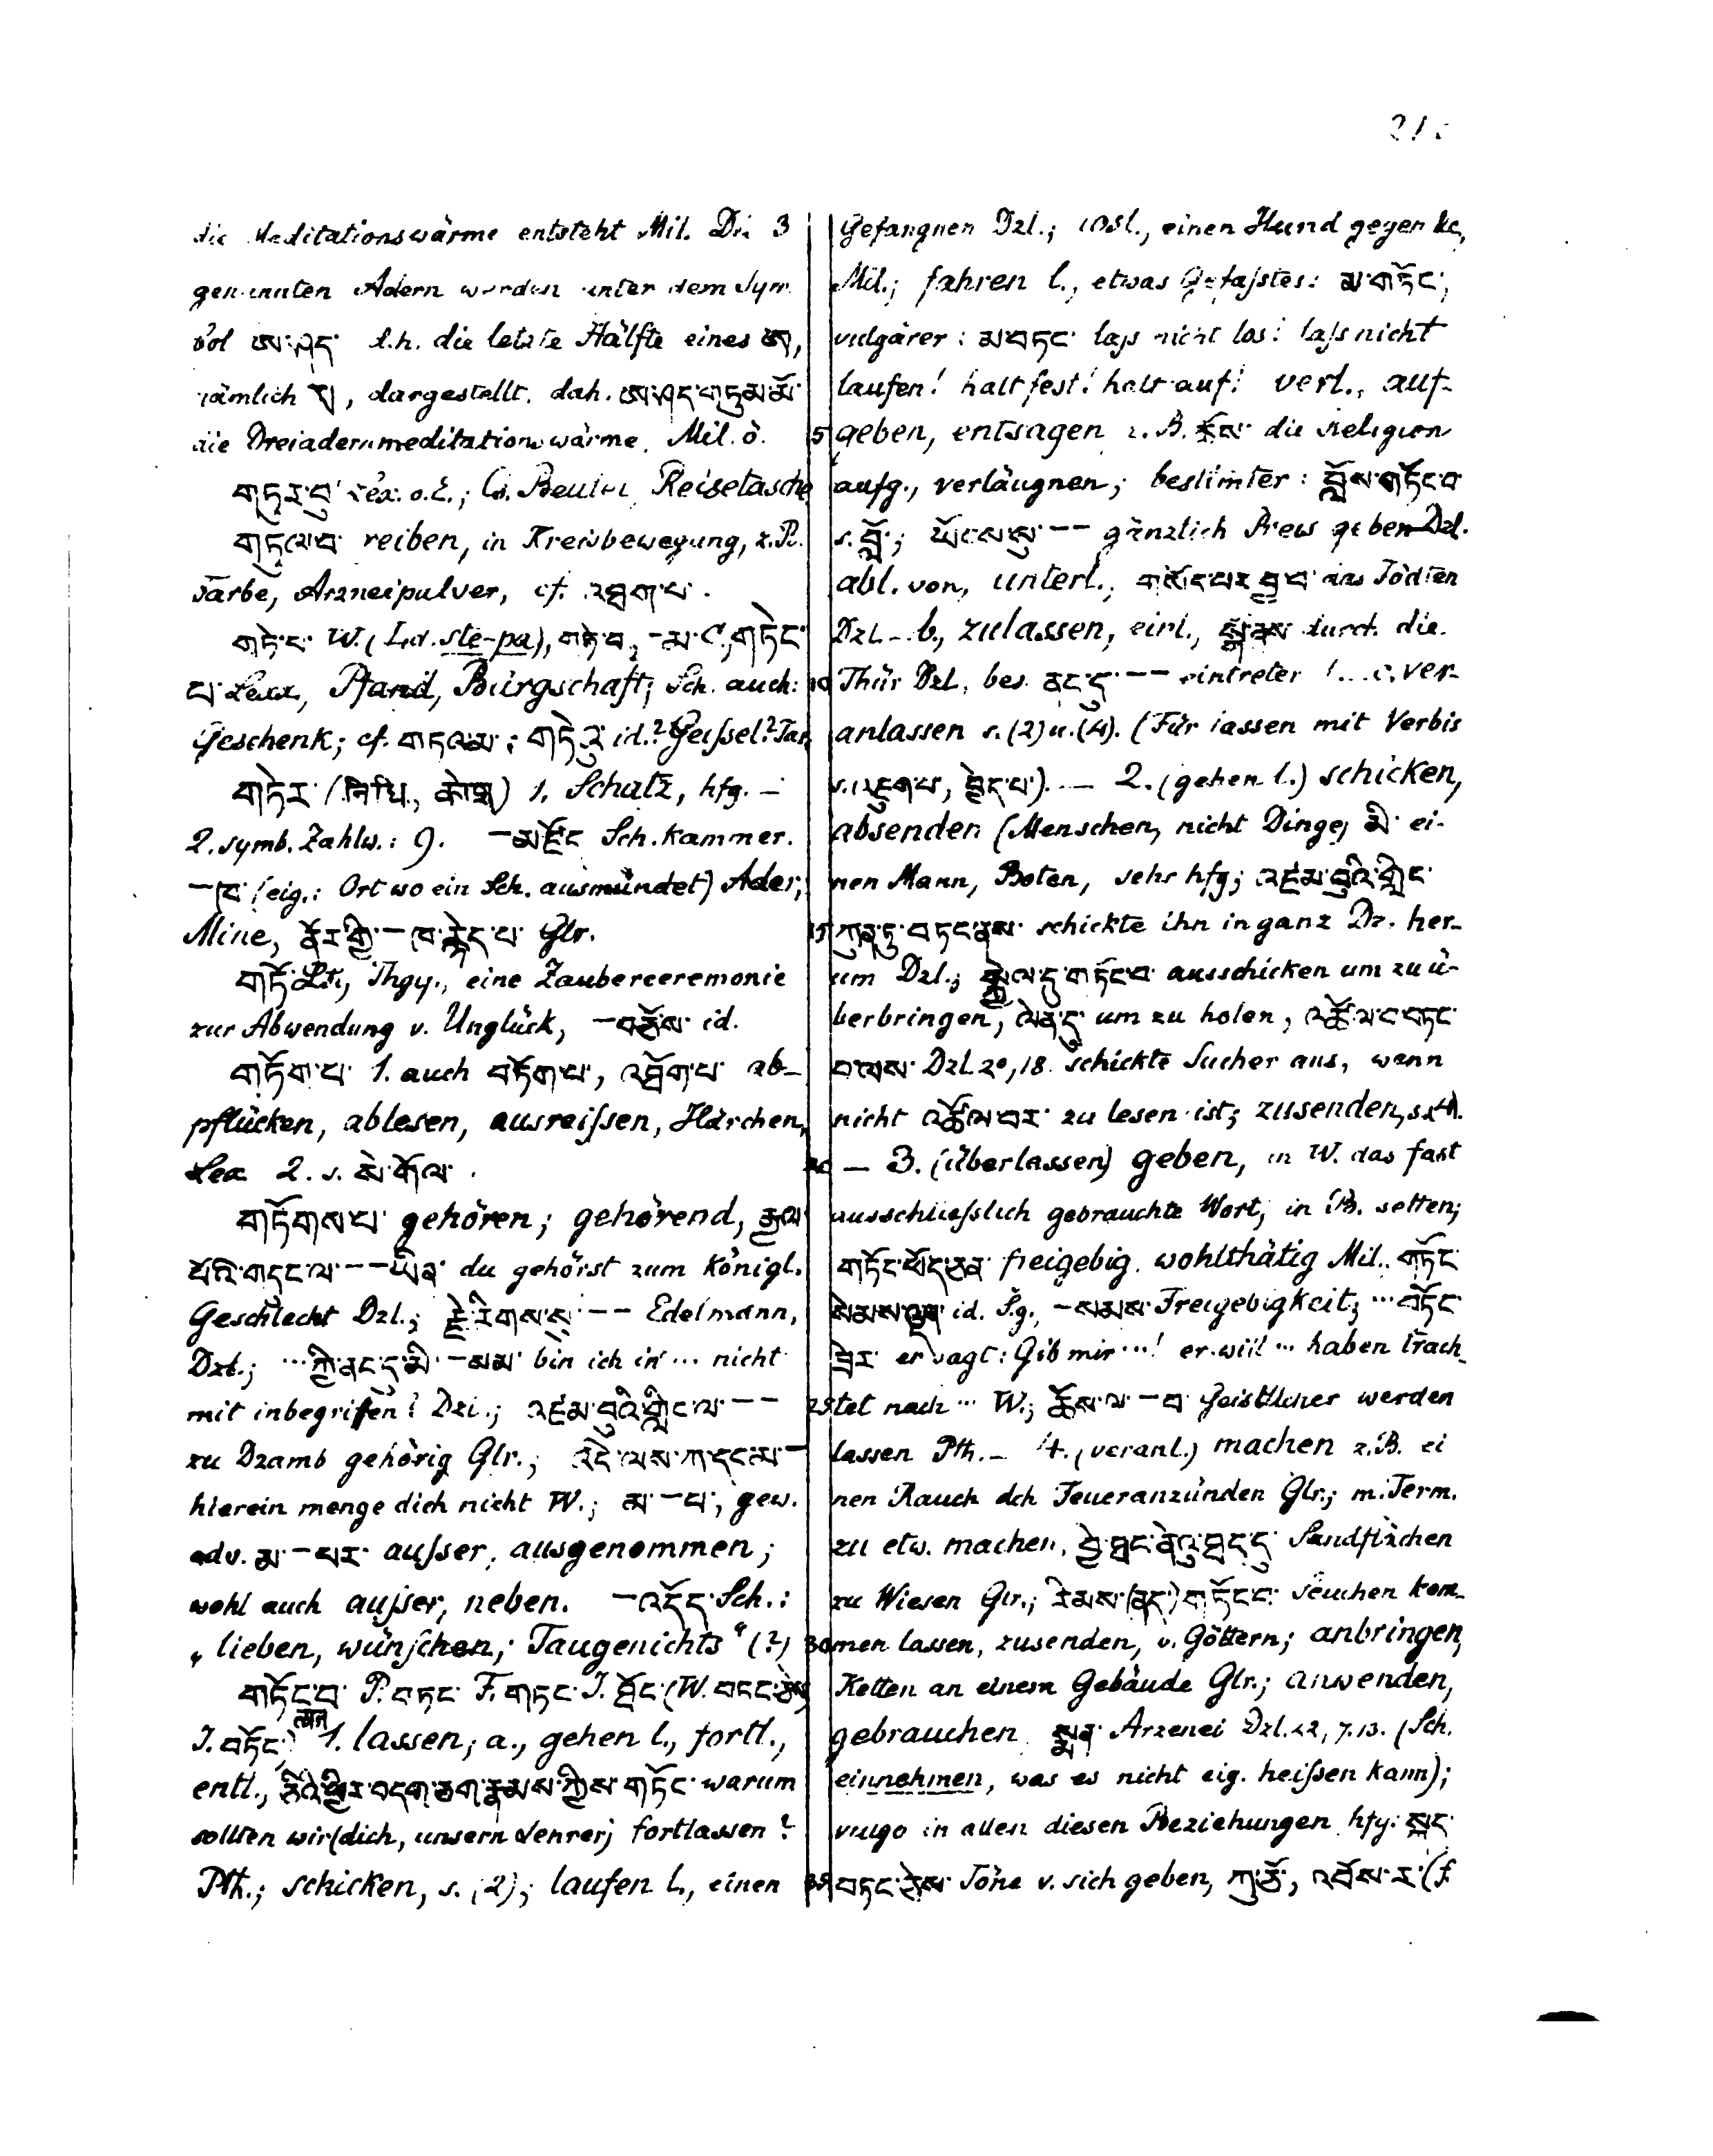 die Meditationswärme entsteht Mil. Die 3
genannten Adern werden unter dem Sym-
bol ཨ་ཤད་ d.h. die letzte Hälfte eines ཨ,
nämlich, dargestellt, dah. ཨ་ཤད་གཏུམ་མོ་
die Dreiadernmeditationswärme. Mil. ö.
གཏུར་བུ་ Lex. o.E.; Cs. Beutel, Reisetasche
གཏུལ་བ་ reiben, in Kreisbewegung, z.B.
Farbe, Arzneipulver, cf. འཐག་པ་.
གཏེ་པ་ W. (Ld. ste-pa), གཏེ་བ, –མ་ C., གཏེང་
པ་ Lexx, Pfand, Bürgschaft; Sch. auch:
Geschenk; cf. གཏའ་མ་; གཏེའུ་ id.? Geissel? Tar.
གཏེར་ (निधि, कोष) 1. Schatz, hfg. –
2. symb. Zahlw.: 9. –མཛོད་ Sch.kammer.
–ཁ་ (eig.: Ort wo ein Sch. ausmündet) Ader,
Mine, ནོར་གྱི་–ཁ་རྙེད་པ་ Glr.
གཏོ་ Lt., Thgy., eine Zauberceremonie
zur Abwendung v. Unglück, –བཅོས་ id.
གཏོག་པ་ 1. auch བཏོག་པ་, འཐོག་པ་ ab-
pflücken, ablesen, ausreissen, Härchen,
Lex 2. s. སེ་གོལ་.
གཏོགས་པ་ gehören; gehörend, རྒྱལ་
པོའི་གདུང་ལ་––ཡིན་ du gehörst zum königl.
Geschlecht Dzl.; རྗེ་རིགས་སུ་–– Edelmann,
Dzl.; ···ཀྱི་ནང་ད་མི་–སམ་ bin ich in ··· nicht
mit inbegriffen? Dzl.; འཛམ་བུའི་གླིང་ལ་––
zu Dzamb gehörig Glr.; འདི་ལས་ཀ་དང་མ་–
hierein menge dich nicht W.; མ་–པ་, gew.
adv. མ་–པར་ ausser, ausgenommen;
wohl auch ausser, neben. –འདོད་ Sch.:
„lieben, wünschen; Taugenichts“ (?)
གཏོང་བ་ P. བཏང་ F. གཏང་ I. ཐོང་ (W. བཏང་ཅེས་
I. བཏོང་) 1. lassen; a., gehen l., fortl.,
entl., ཅིའི་ཕྱིར་བདག་ཅག་རྣམས་ཀྱིས་གཏོང་ warum
sollten wir (dich, unsern Lehrer) fortlassen?
Pth.; schicken, s. (2); laufen l., einen
Gefangnen Dzl.; losl., einen Hund gegen &c,
Mil.; fahren l., etwas Gefasstes: མ་གཏོང་,
vulgärer: མ་བཏང་ lass nicht los! lass nicht
laufen! halt fest! halt auf! verl., auf-
5 geben, entsagen z.B. ཆོས་ die Religion
aufg., verläugnen; bestimter: བློས་གཏོང་བ་
s. བློ་; ཡོངས་སུ་–– gänzlich Preis geben Dzl.
abl. von, unterl., གསོད་པར་བྱ་བ་ das Tödten
Dzl. – b., zulassen, einl., སྒོ་ནས་ durch die
10 Thür Dzl, bes. ནང་དུ་–– eintreten l. – c. ver-
anlassen s. (2) u. (4). (Für lassen mit Verbis
s. འཇུག་པ་, བྱེད་པ་). – 2. (gehen l.) schicken,
absenden (Menschen, nicht Dinge) མི་ ei-
nen Mann, Boten, sehr hfg; འཛམ་བུའི་གླིང་
15 ཀུན་ཏུ་བཏང་ནས་ schickte ihn in ganz Dz. her-
um Dzl.; སྐྱེལ་དུ་གཏོང་བ་ ausschicken um zu ü-
berbringen, ལེན་དུ་ um zu holen, འཚོལ་བ་བཏང་
བ་ལས་ Dzl 20,18. schickte Sucher aus, wenn
nicht འཚོལ་བར་ zu lesen ist; zusenden, s. (4).
20 – 3. (überlassen) geben, in W. das fast
ausschliesslich gebrauchte Wort, in B. selten;
གཏོང་ཕོད་ཅན་ freigebig, wohlthätig Mil., གཏོང་
སེམས་ཅན་ id. Sg., –སམས་ Freigebigkeit; ··· བཏོང་
ཟེར་ er sagt: Gib mir ···! er will ··· haben trach-
25 tet nach ··· W.; ཆོས་ལ་–བ་ Geistlicher werden
lassen Pth. – 4. (veranl.) machen z.B. ei
nen Rauch dch Feueranzünden Glr.; m. Term.
zu etw. machen, བྱེ་ཐང་ནེའུ་ཐང་དུ་ Sandflächen
zu Wiesen Glr.; རིམས་(ནད་)གཏོང་བ་ Seuchen kom-
30 men lassen, zusenden, v. Göttern; anbringen,
Ketten an einem Gebäude Glr.; anwenden,
gebrauchen སྨན་ Arzenei Dzl. 22, 7.13. (Sch.
einnehmen, was es nicht eig. heissen kann);
vulgo in allen diesen Beziehungen hfg: སྐད་
35 བཏང་ཅེས་ Töne v. sich geben, ཀུ་ཅོ་, འབོས་ར་ (f.